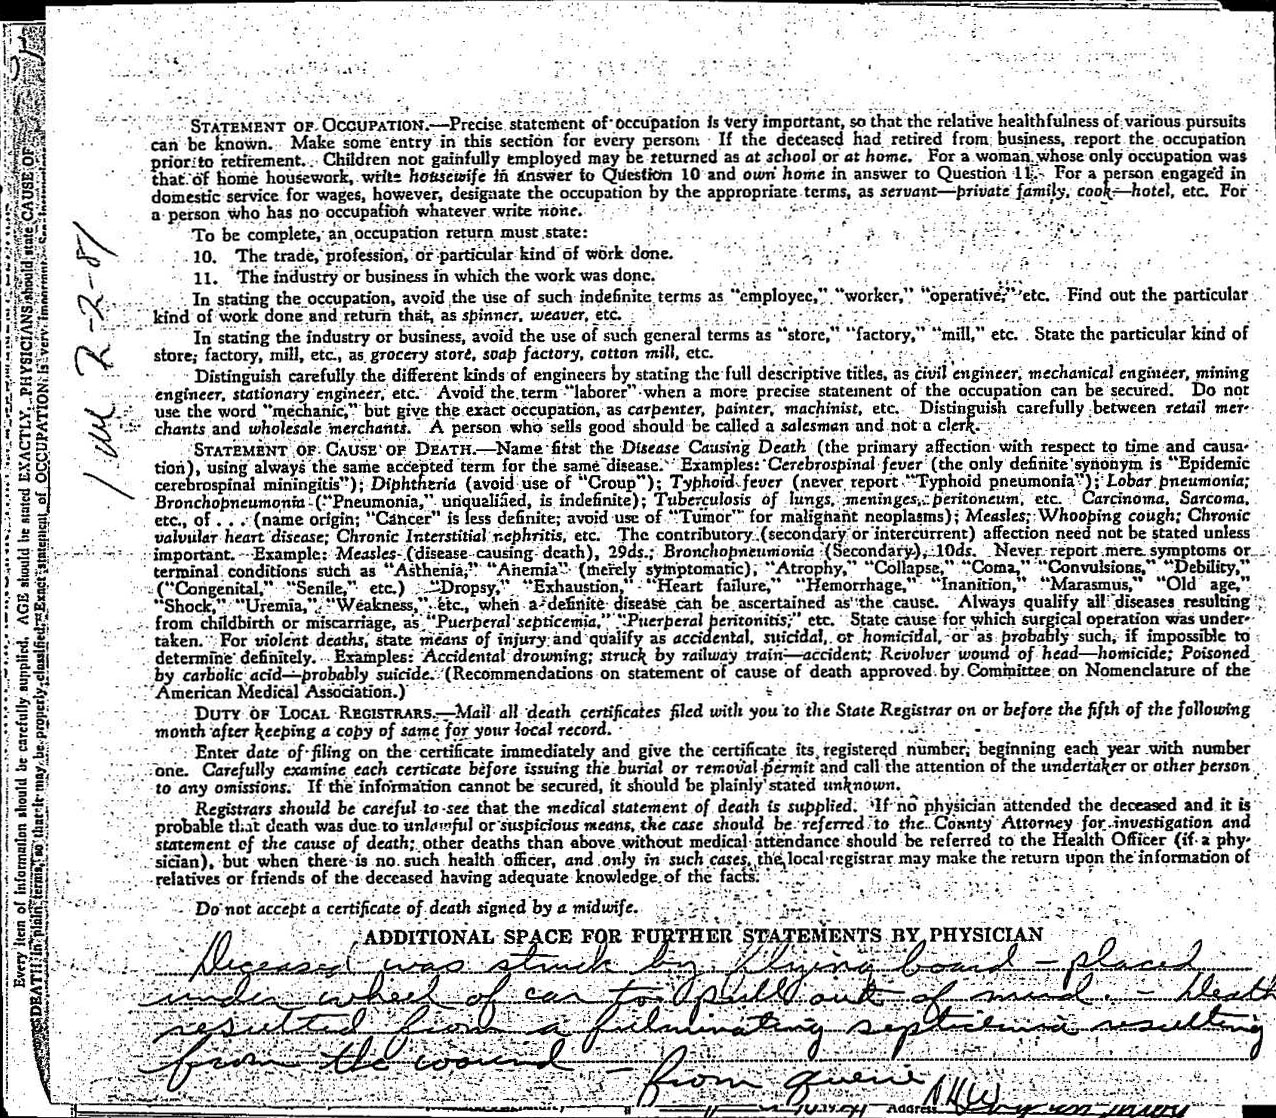 STATEMENT OF OCCUPATION.—Precise statement of occupation is very important, so that the relative healthfulness of various pursuits
can be known. Make some entry in this section for every person. If the deceased had retired from business, report the occupation
prior to retirement. Children not gainfully employed may be returned as at school or at home. For a woman whose only occupation was
that of home housework, write housewife in answer to Question 10 and own home in answer to Question 11. For a person engaged in
domestic service for wages, however, designate the occupation by the appropriate terms, as servant—private family, cook—hotel, etc. For
a person who has no occupation whatever write none.
To be complete, an occupation return must state:
10. The trade, profession, or particular kind of work done.
11. The industry or business in which the work was done.
In stating the occupation, avoid the use of such indefinite terms as "employee," "worker," "operative," etc. Find out the particular
kind of work done and return that, as spinner, weaver, etc.
In stating the industry or business, avoid the use of such general terms as "store," "factory," "mill," etc. State the particular kind of
store, factory, mill, etc., as grocery store, soap factory, cotton mill, etc.
Distinguish carefully the different kinds of engineers by stating the full descriptive titles, as civil engineer, mechanical engineer, mining
engineer, stationary engineer, etc. Avoid the term "laborer" when a more precise statement of the occupation can be secured. Do not
use the word "mechanic," but give the exact occupation, as carpenter, painter, machinist, etc. Distinguish carefully between retail mer-
chants and wholesale merchants. A person who sells good should be called a salesman and not a clerk.
STATEMENT OF CAUSE OF DEATH.—Name first the Disease Causing Death (the primary affection with respect to time and causa-
tion), using always the same accepted term for the same disease. Examples: Cerebrospinal fever (the only definite synonym is "Epidemic
cerebrospinal miningitis"); Diphtheria (avoid use of "Croup"); Typhoid fever (never report "Typhoid pneumonia"); Lobar pneumonia;
Bronchopneumonia ("Pneumonia," unqualified, is indefinite); Tuberculosis of lungs, meninges, peritoneum, etc. Carcinoma, Sarcoma,
etc., of . . . (name origin; "Cancer" is less definite; avoid use of "Tumor" for malignant neoplasms); Measles; Whooping cough; Chronic
valvular heart disease; Chronic Interstitial nephritis, etc. The contributory (secondary or intercurrent) affection need not be stated unless
important. Example: Measles (disease causing death), 29ds.; Bronchopneumonia (Secondary), 10ds. Never report mere symptoms or
terminal conditions such as "Asthenia," "Anemia" (merely symptomatic); "Atrophy," "Collapse," "Coma," "Convulsions," "Debility,"
("Congenital," "Senile," etc.) "Dropsy," "Exhaustion," "Heart failure," "Hemorrhage," "Inanition," "Marasmus," "Old age,"
"Shock," "Uremia," "Weakness," etc., when a definite disease can be ascertained as the cause. Always qualify all diseases resulting
from childbirth or miscarriage, as "Puerperal septicemia," "Puerperal peritonitis," etc. State cause for which surgical operation was under-
taken. For violent deaths, state means of injury and qualify as accidental, suicidal, or homicidal, or as probably such, if impossible to
determine definitely. Examples: Accidental drowning; struck by railway train—accident; Revolver wound of head—homicide; Poisoned
by carbolic acid—probably suicide. (Recommendations on statement of cause of death approved by Committee on Nomenclature of the
American Medical Association.)
DUTY OF LOCAL REGISTRARS.—Mail all death certificates filed with you to the State Registrar on or before the fifth of the following
month after keeping a copy of same for your local record.
Enter date of filing on the certificate immediately and give the certificate its registered number, beginning each year with number
one. Carefully examine each certicate before issuing the burial or removal permit and call the attention of the undertaker or other person
to any omissions. If the information cannot be secured, it should be plainly stated unknown.
Registrars should be careful to see that the medical statement of death is supplied. If no physician attended the deceased and it is
probable that death was due to unlawful or suspicious means, the case should be referred to the County Attorney for investigation and
statement of the cause of death; other deaths than above without medical attendance should be referred to the Health Officer (if a phy-
sician), but when there is no such health officer, and only in such cases, the local registrar may make the return upon the information of
relatives or friends of the deceased having adequate knowledge of the facts.
Do not accept a certificate of death signed by a midwife.
ADDITIONAL SPACE FOR FURTHER STATEMENTS BY PHYSICIAN
Deceased was struck by flying board – placed
under wheel of car to pull out of mud. – Death
resulted from a fulminating septicemia resulting
from the wound – from querie
Address
Every item of information should be carefully supplied. AGE should be stated EXACTLY. PHYSICIANS should state CAUSE OF
DEATH in plain terms, so that it may be properly classified. Exact statement of OCCUPATION is very important.